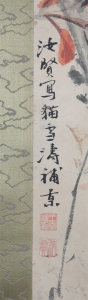 汝賢寫貓雪濤補景